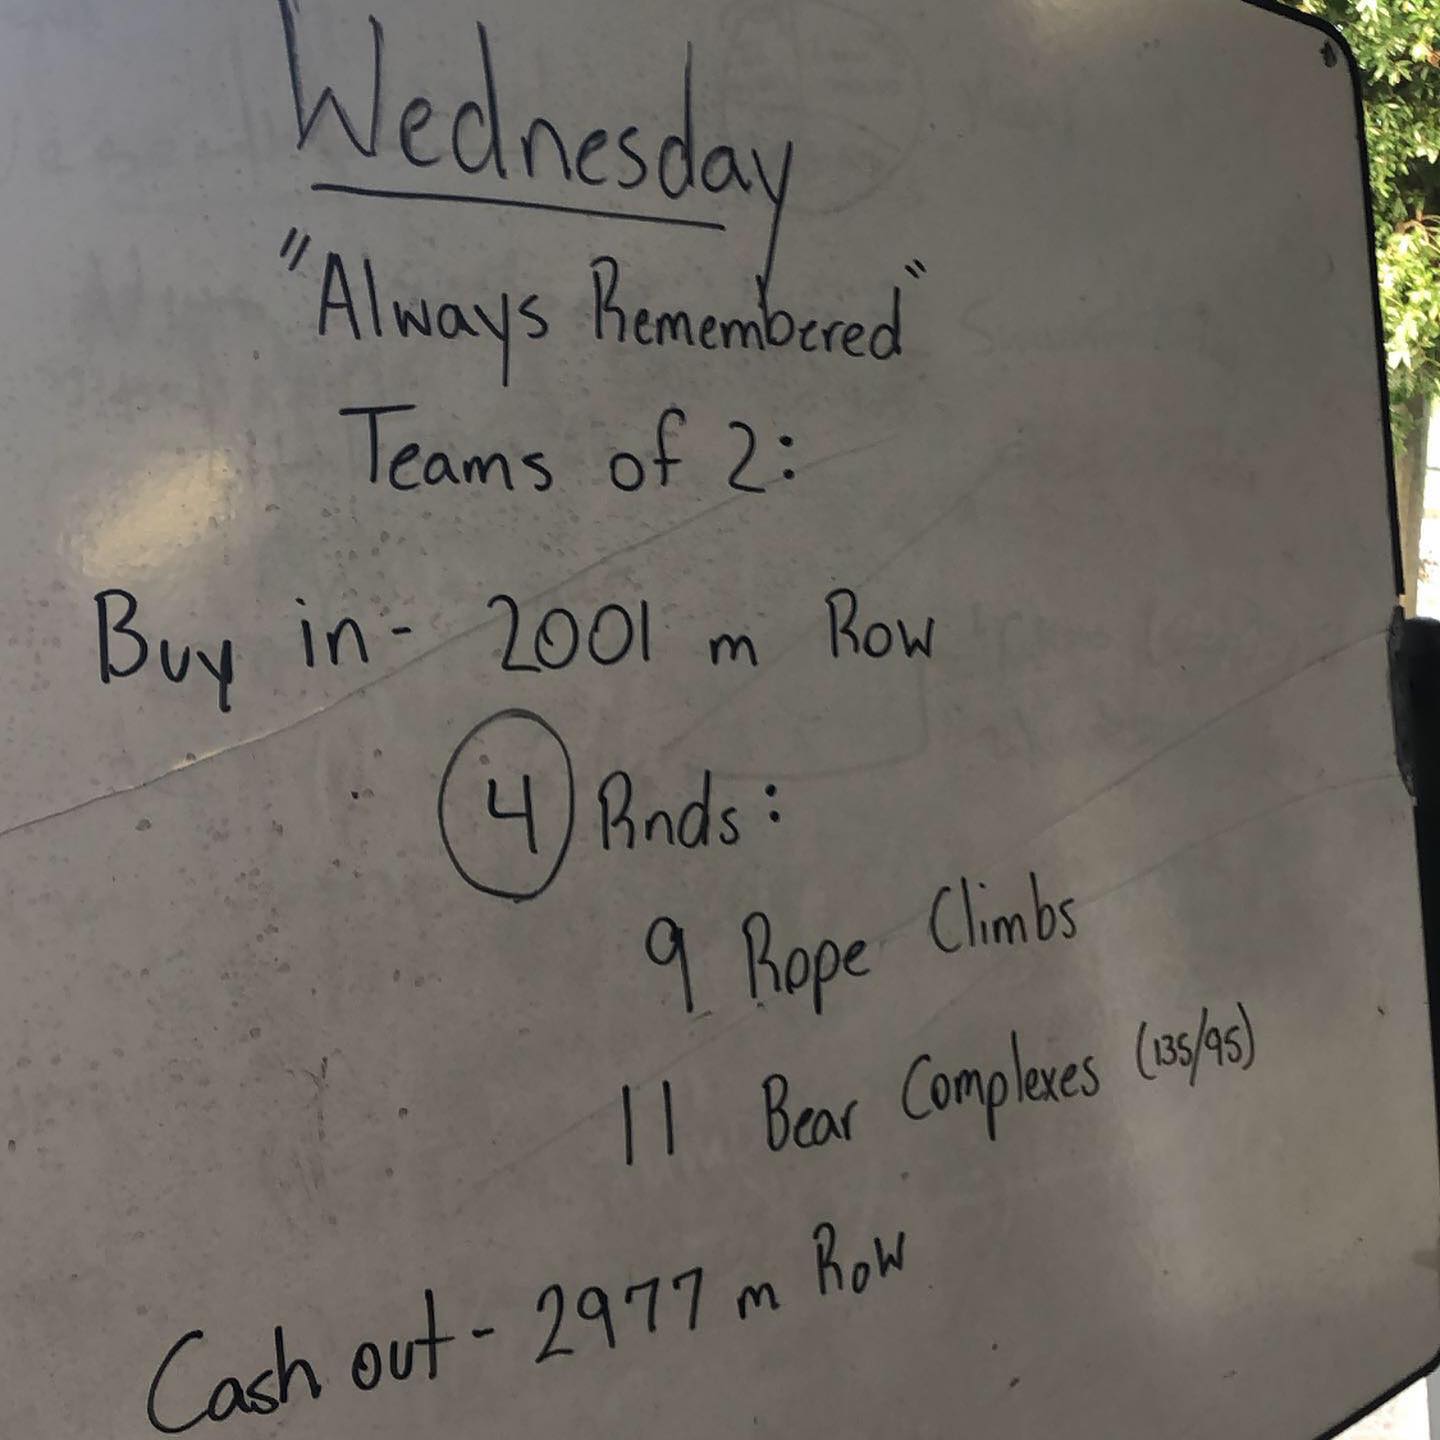 Wednesday
"Always Remembered"
Teams of 2:
Buy in - 2001 m Row
4 Rnds:
9 Rope Climbs
11 Bear Complexes (135/95)
Cash out - 2977 m Row